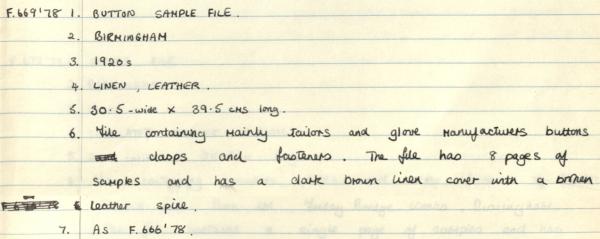 F.669'78 1. BUTTON SAMPLE FILE.
2. BIRMINGHAM
3. 1920s
4. LINEN, LEATHER.
5. 30.5 - wide × 39.5 cms long.
6. File containing mainly tailors and glove manufacturers buttons
clasps and fasteners. The file has 8 pages of
samples and has a dark brown linen cover with a broken
leather spine.
7. As F.666'78.